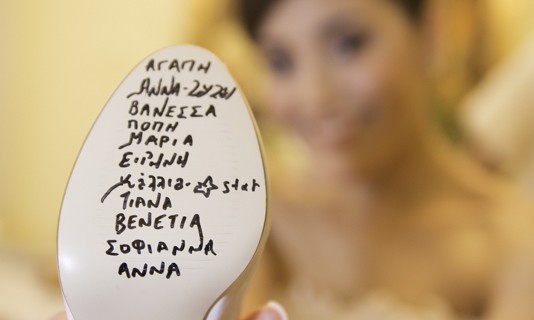 ΑΓΑΠΗ
ΑΝΝΑ-ΖΥΖΗ
ΒΑΝΕΣΣΑ
ΠΟΠΗ
ΜΑΡΙΑ
ΕΙΡΗΝΗ
Κέλλια- star
ΤΙΑΝΑ
ΒΕΝΕΤΙΑ
ΣΟΦΙΑΝΝΑ
ΑΝΝΑ